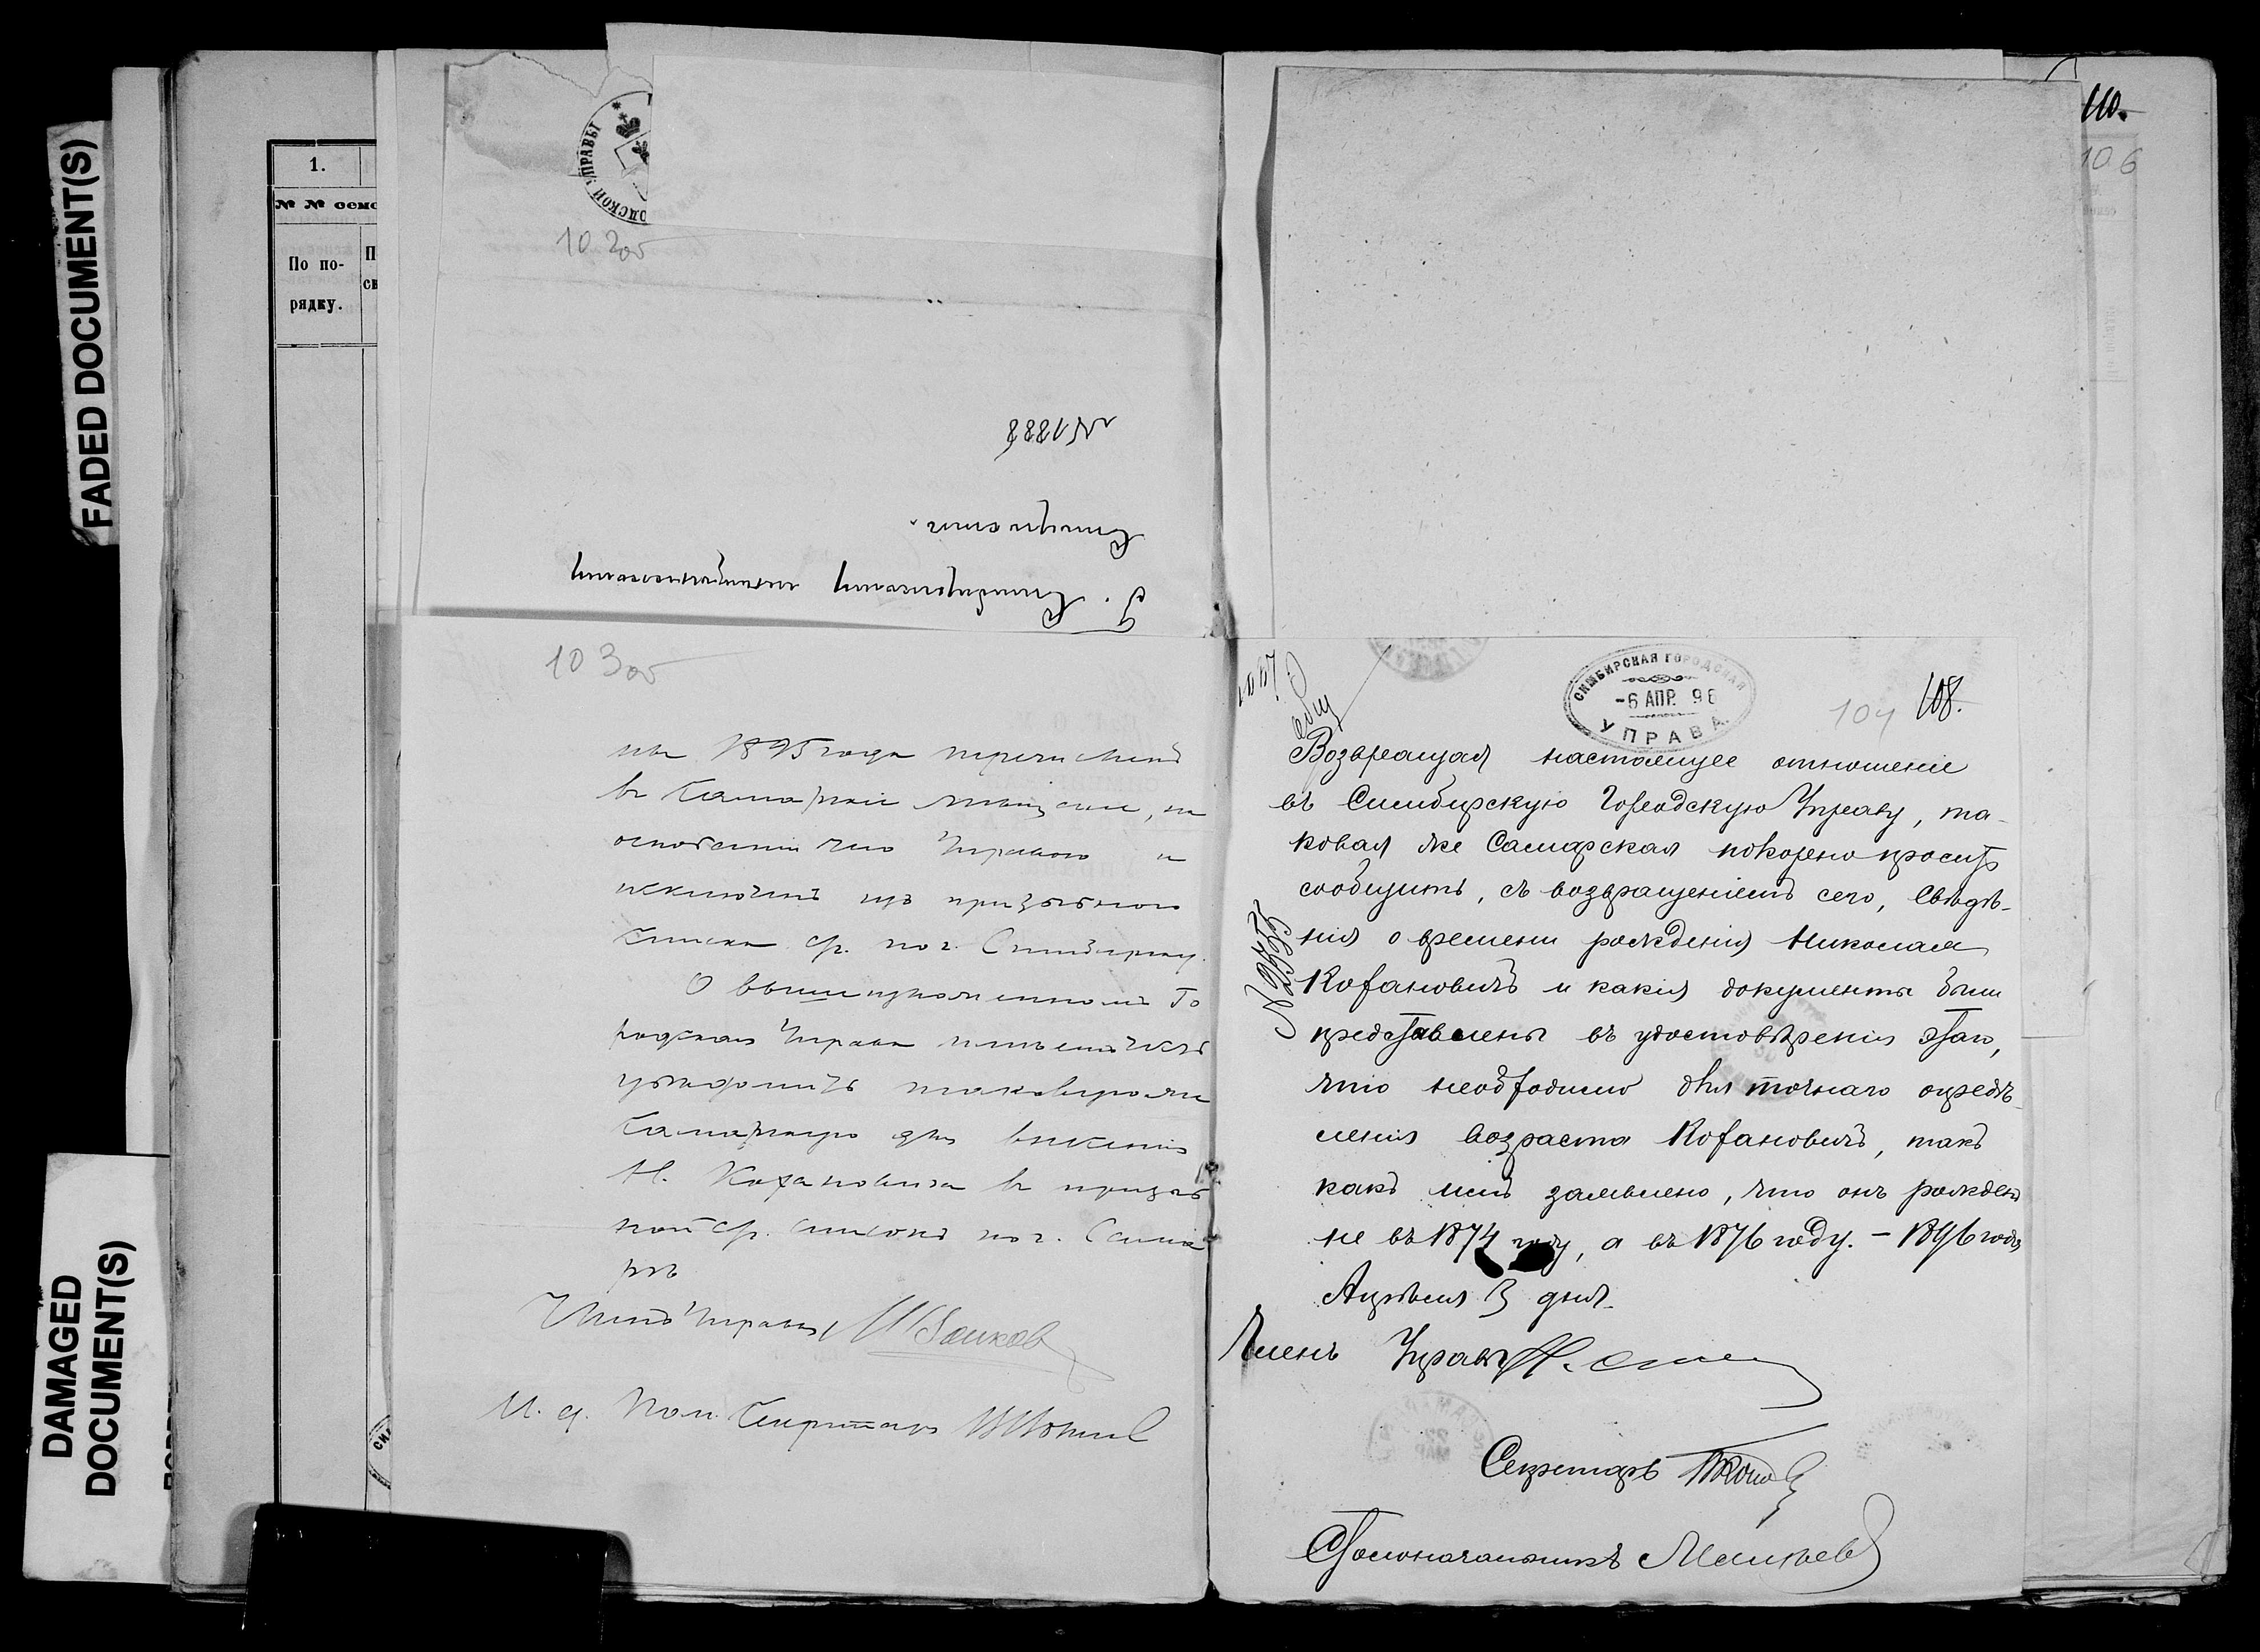 FADED DOCUMENT(S)
DAMAGED
DOCUMENT(S)
1.
№ № семе
По по-
рядку.
П
св
ОДСКОЙ УПРАВЫ
102 об
№ 1888
Симбирскому полицейскому
103 об
1895 года перечисленъ
въ Самарскіе мѣщане, на
основаніи чего Управою и
исключенъ изъ призывного
списка по г. Симбирску.
О вышеизложенномъ Го
родская Управа имѣетъ честь
увѣдомить таковую же
Самарскую для внесенія
Н. Кохановича въ призыв
ной списокъ по г. Сама
рѣ
Членъ Управы
И. д. Пом. Секретаря
110.
106
СИМБИРСКАЯ ГОРОДСКАЯ
-6 АПР. 96
УПРАВА.
104 108.
Возвращая настоящее отношеніе
въ Симбирскую Городскую Управу, та-
ковая же Самарская покорно проситъ
сообщить, съ возвращеніемъ сего, свѣдѣ-
нія о времени рожденія Николая
№ 2535
Кохановичъ и какія документы были
представлены въ удостовѣреніи этаго,
что необходимо для точнаго опредѣ-
ленія возраста Кохановичъ, такъ
какъ имъ заявлено, что онъ рожденъ
не въ 1874 году, а въ 1876 году. – 1896 года
Апрѣля 3 дня.
Членъ Управы
Секретарь
Столоначальникъ